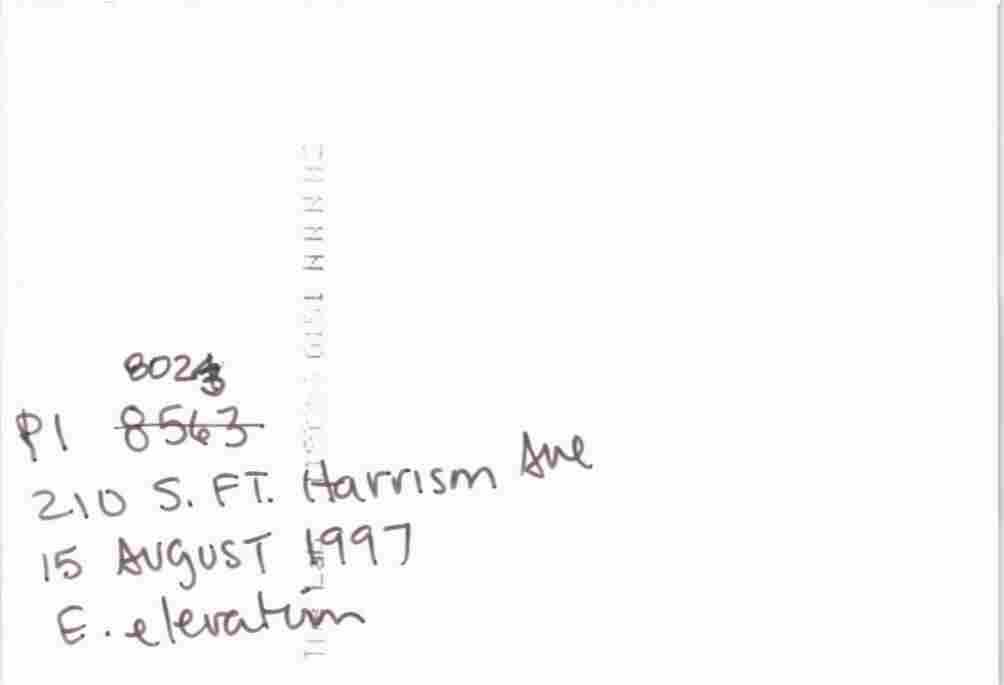 802
PI 8563
210 S. FT. Harrison Ave
15 AUGUST 1997
E. elevation